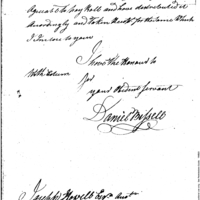 Agreeable to Pay Roll and have distributed it
Accordingly and taken Receipts for the Same which
I Inclose to you
I have the Honour to
be with Esteem
Sir
your Obedient Servant
Daniel Bissell
Joseph Howell Esqr